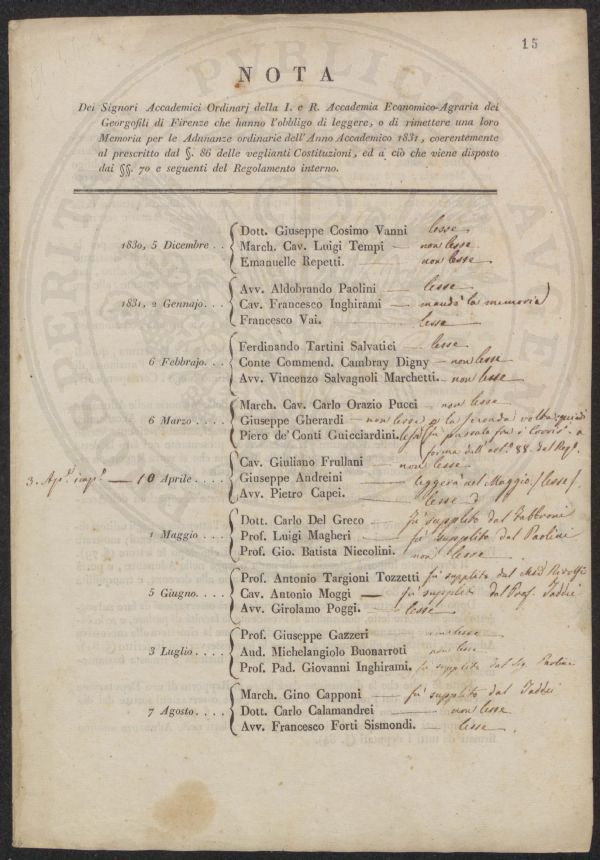 15
NOTA
Dei Signori Accademici Ordinarj della I. e R. Accademia Economico-Agraria dei
Georgofili di Firenze che hanno l'obbligo di leggere, o di rimettere una loro
Memoria per le Adunanze ordinarie dell'Anno Accademico 1831, coerentemente
al prescritto dal §. 86 delle veglianti Costituzioni, ed a ciò che viene disposto
dai §§. 70 e seguenti del Regolamento interno.
Dott. Giuseppe Cosimo Vanni lesse
1830, 5 Dicembre . . March. Cav. Luigi Tempi — non lesse
Emanuelle Repetti. non lesse
Avv. Aldobrando Paolini — lesse
1831, 2 Gennajo. . . Cav. Francesco Inghirami — mandò la memoria
Francesco Vai. — lesse
Ferdinando Tartini Salvatici — lesse
6 Febbrajo. . . Conte Commend. Cambray Digny — non lesse
Avv. Vincenzo Salvagnoli Marchetti. non lesse
March. Cav. Carlo Orazio Pucci — non lesse
6 Marzo . . . . Giuseppe Gherardi — non lesse p la seconda volta, quindi
Piero de' Conti Guicciardini. lesse
forma dell' art.º 88 del Reg.º
Cav. Giuliano Frullani — non lesse
3. Ap.le — 10 Aprile. . . . Giuseppe Andreini — leggerà nel Maggio / lesse /
Avv. Pietro Capei. — lesse
Dott. Carlo Del Greco — fu supplito dal Fabbroni
1 Maggio . . . Prof. Luigi Magheri — fu supplito dal Paolini
Prof. Gio. Batista Niccolini. non lesse
Prof. Antonio Targioni Tozzetti fu supplito dal Ridolfi
5 Giugno. . . . Cav. Antonio Moggi — fu supplito dal Prof. Taddei
Avv. Girolamo Poggi. — lesse
Prof. Giuseppe Gazzeri non lesse
3 Luglio . . . . Aud. Michelangiolo Buonarroti non lesse
Prof. Pad. Giovanni Inghirami. fu supplito dal Sig. Paolini
March. Gino Capponi — fu supplito dal Taddei
7 Agosto. . . . Dott. Carlo Calamandrei — non lesse
Avv. Francesco Forti Sismondi. — lesse